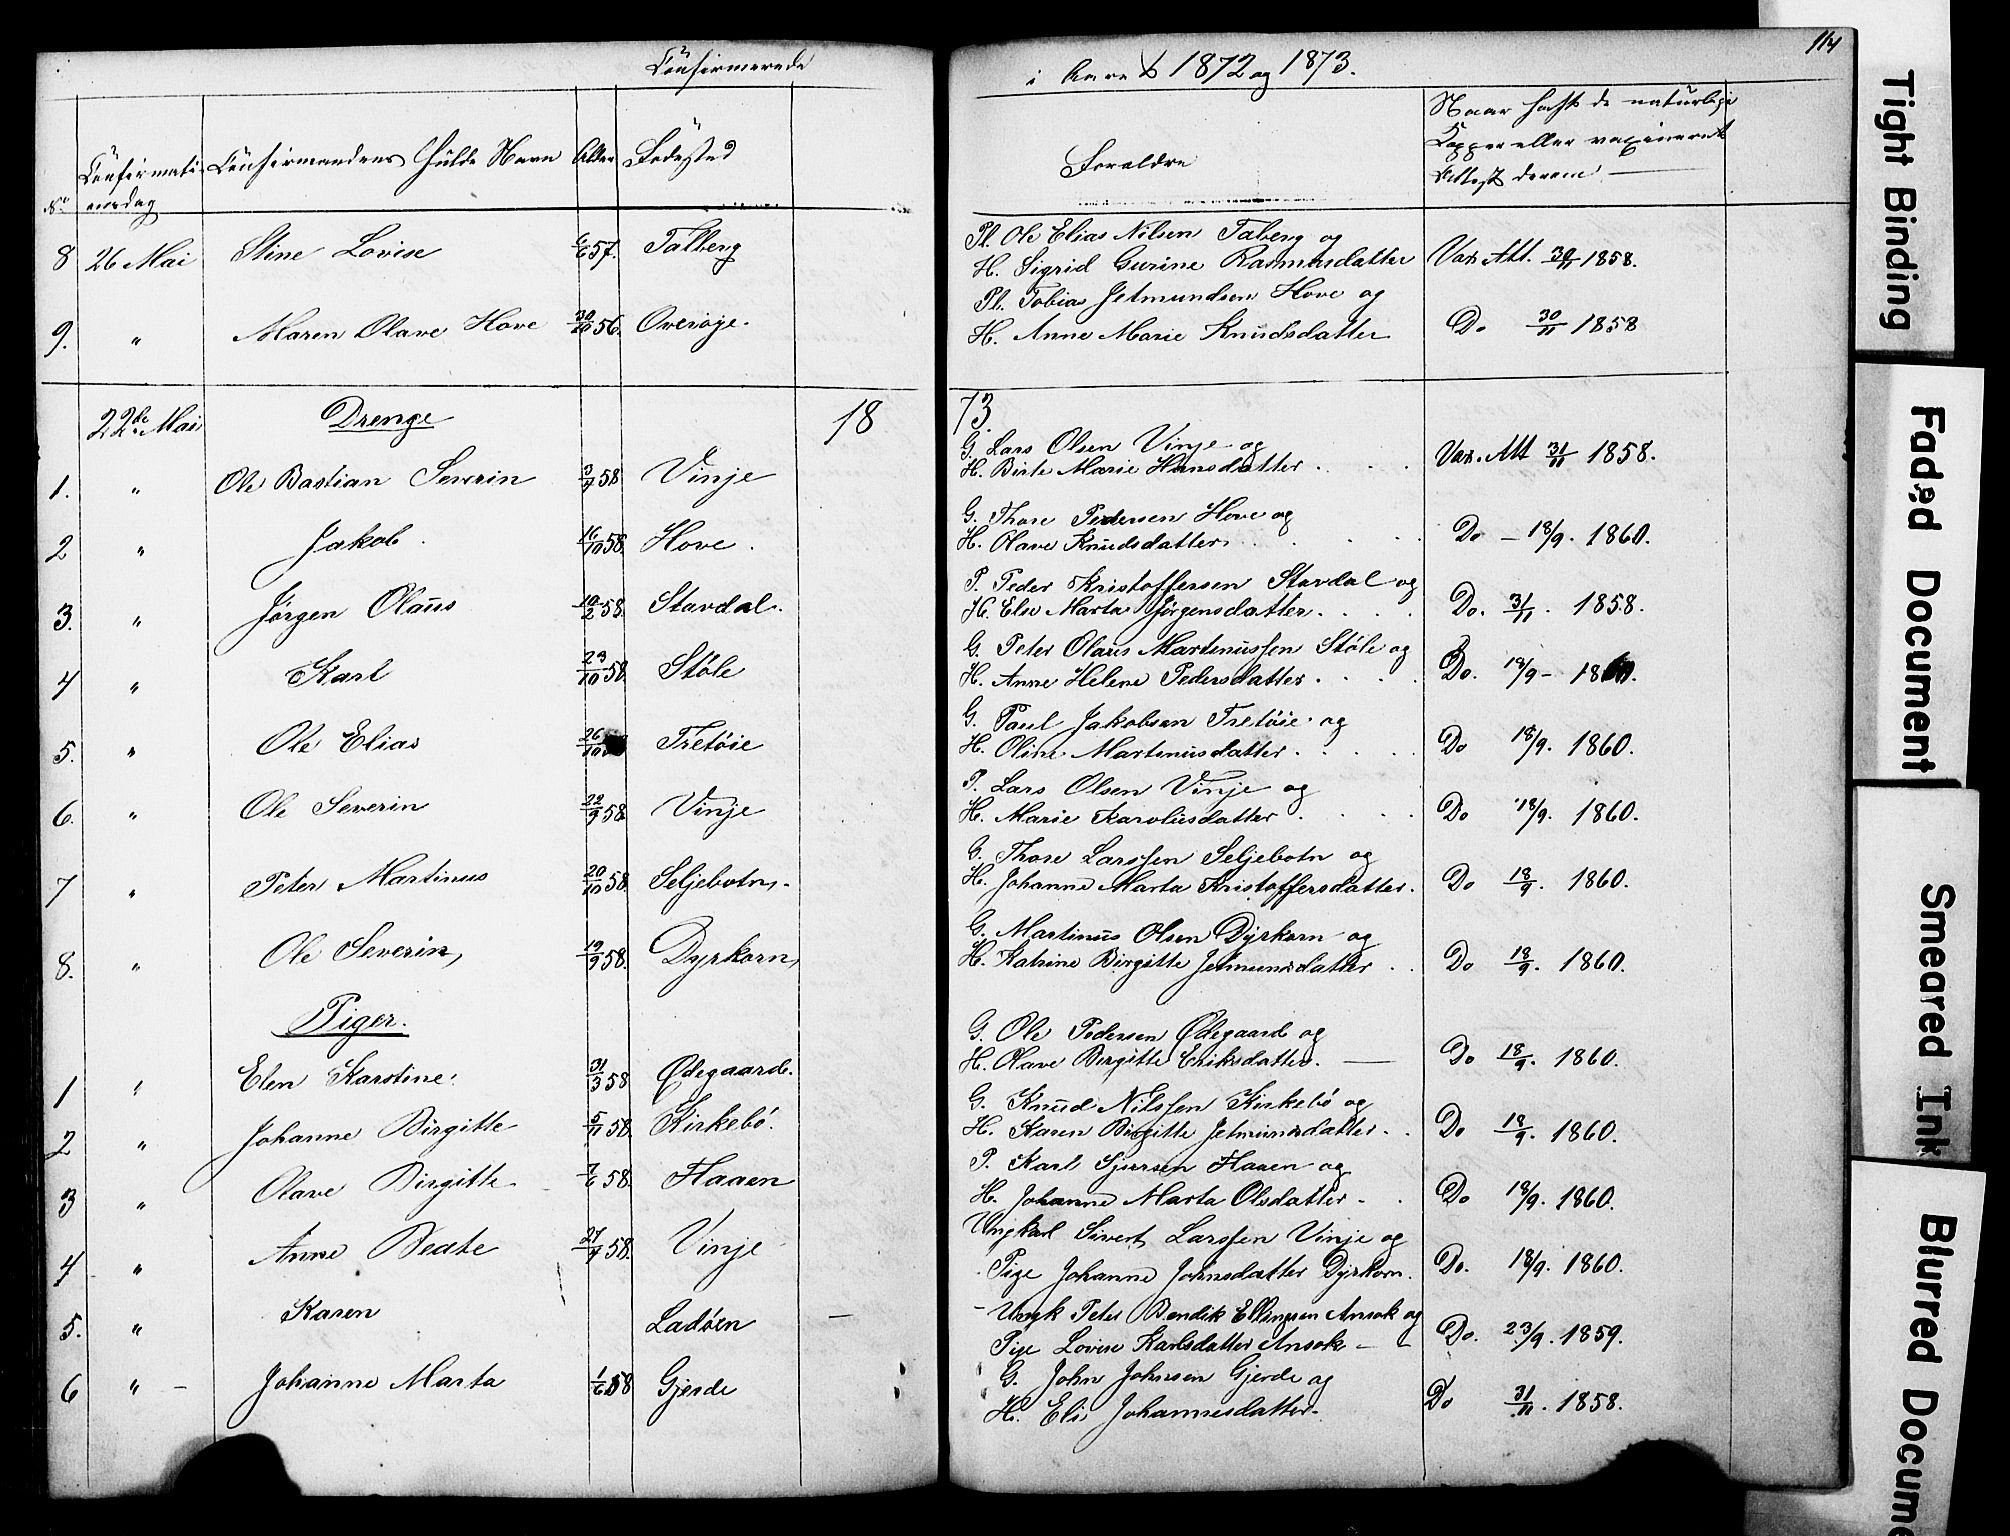 Confirmerede
i Aaret 1872 og 1873.
114
No
Confirmati-
onsdag
Confirmandens fulde Navn
Alder
Fødested
Forældre
Naar havt de naturlige
Kopper eller vaxineret
Attest derom
8 26 Mai Stine Lovise 6/6 57. Talberg
Pl. Ole Elias Nilsen Taberg og
H. Sigrid Gurine Rasmusdatter Vax. Att. 30/11 1858.
9. " Maren Olave Hove 30/10 56. Overøye.
Pl. Tobias Jetmundsen Hove og
H. Anne Marie Knudsdatter Do 30/11 1858
22de Mai Drenge 1873.
1. " Ole Bastian Severin 3/7 58 Vinje
G. Lars Olsen Vinje og
H. Birte Marie Hansdatter Vax. Att 31/11 1858.
2 " Jakob. 16/10 58. Hove.
G. Thore Pedersen Hove og
H. Olave Knudsdatter Do - 18/9. 1860.
3. " Jørgen Olaus 10/2 58. Stavdal.
P. Peder Kristoffersen Stavdal og
H. Else Marta Jørgensdatter Do. 31/11. 1858.
4 " Karl 29/10 58 Støle
G. Peter Olaus Martinussen Støle og
H. Anne Helene Pedersdatter Do. 18/9 - 1860.
5. " Ole Elias 26/10 Tretøie
G. Paul Jakobsen Tretøie og
H. Oline Martinusdatter Do 18/9. 1860.
6. " Ole Severin 22/9 58 Vinje
P. Lars Olsen Vinje og
H. Marie Karolusdatter Do 18/9. 1860.
7 " Peter Martinus 20/10 58 Seljebotn.
G. Thore Larssen Seljebotn og
H. Johanne Marta Kristoffersdatter. Do 18/9. 1860.
8. " Ole Severin, 19/9 58. Dyrkorn,
G. Martinus Olsen Dyrkorn og
H. Katrine Birgitte Jetmundsdatter Do 18/9. 1860.
Piger.
1 " Elen Karstine. 31/3 58 Ødegaard.
G. Ole Pedersen Ødegaard og
H. Olave Birgitte Eriksdatter. Do 18/9. 1860.
2 " Johanne Birgitte 5/11 58. Kirkebø.
G. Knud Nilssen Kirkebø og
H. Karen Birgitte Jetmundsdatter. Do 18/9. 1860.
3 " Olave Birgitte 7/6 58. Haaen
P. Karl Sjursen Haaen og
H. Johanne Marta Olsdatter - Do 18/9. 1860.
4 " Anne Beate 27/7 58. Vinje
Ungkarl Sivert Larssen Vinje og
Pige Johanne Johnsdatter Dyrkorn. Do. 18/9. 1860.
5. " Karen Ladøen
Ungk Peter Bendik Ellingsen Ansok og
Pige Lovise Karlsdatter Ansok Do. 23/9. 1859.
6 " Johanne Marta 1/6 58 Gjerde
G. John Johnsen Gjerde og
H. Eli Johannesdatter. Do 31/11. 1858.
Tight Binding
Faded Document
Smeared Ink
Blurred Docume